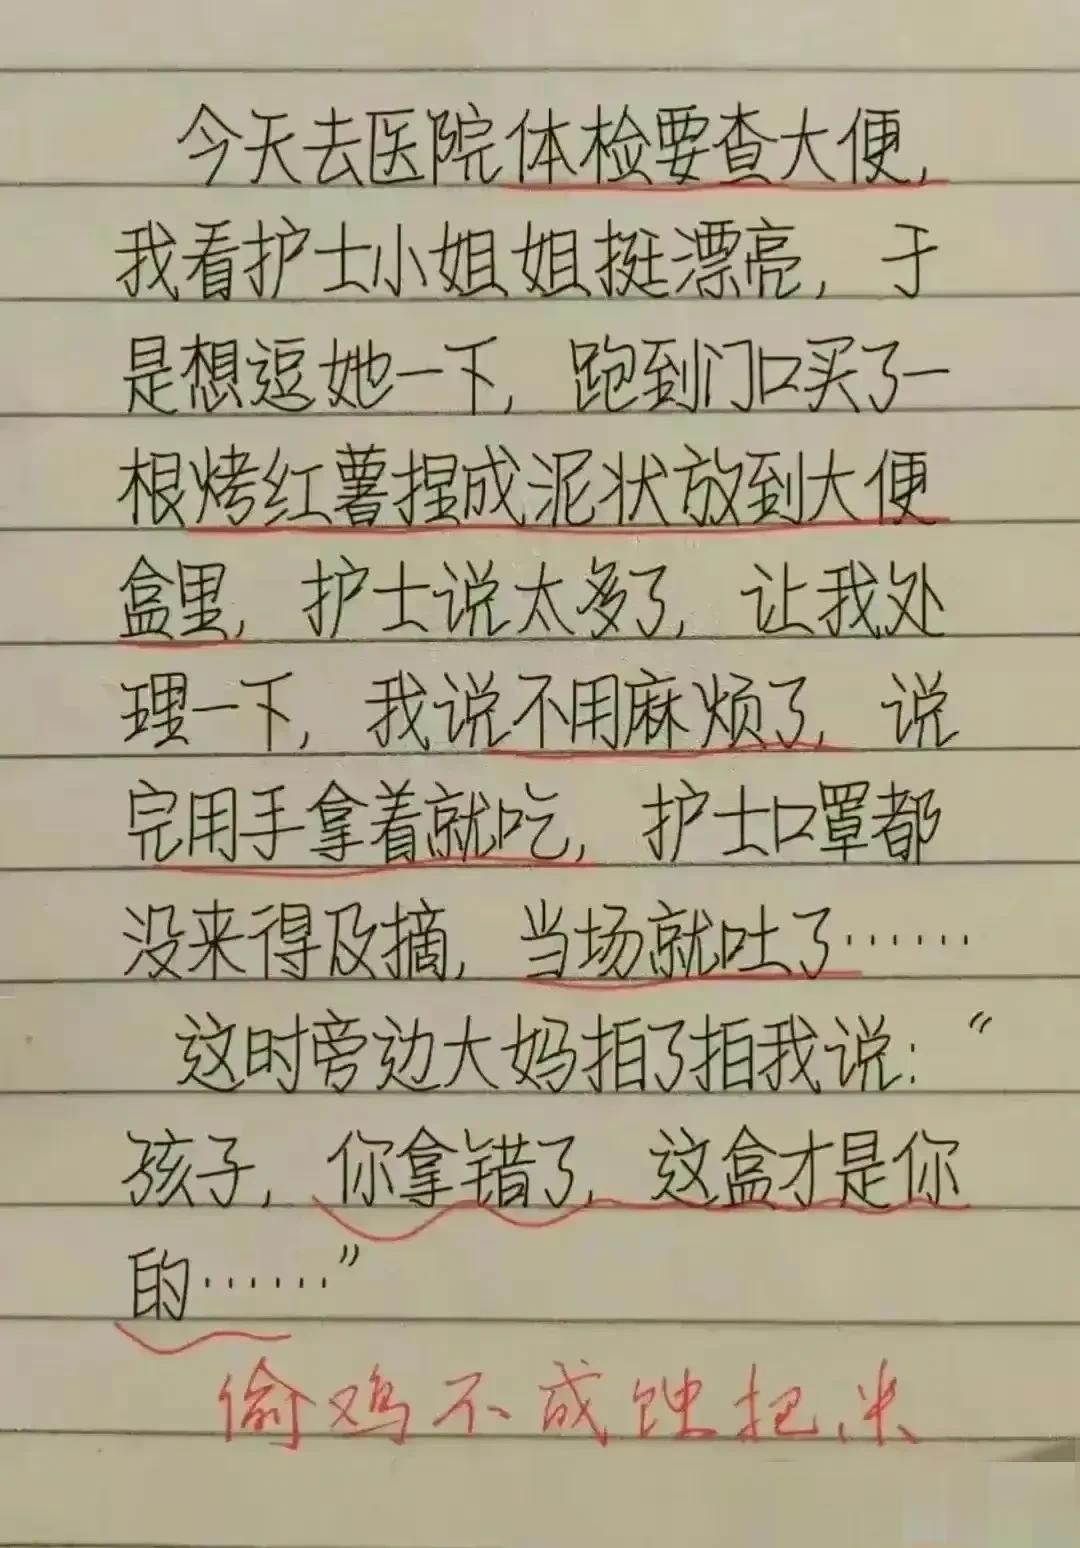 今天去医院体检要查大便,
我看护士小姐姐挺漂亮, 于
是想逗她一下, 跑到门口买了一
根烤红薯捏成泥状放到大便
盒里, 护士说太多了, 让我处
理一下, 我说不用麻烦了, 说
完用手拿着就吃, 护士口罩都
没来得及摘, 当场就吐了……
这时旁边大妈拍了拍我说: “
孩子, 你拿错了, 这盒才是你
的……”
偷鸡不成蚀把米